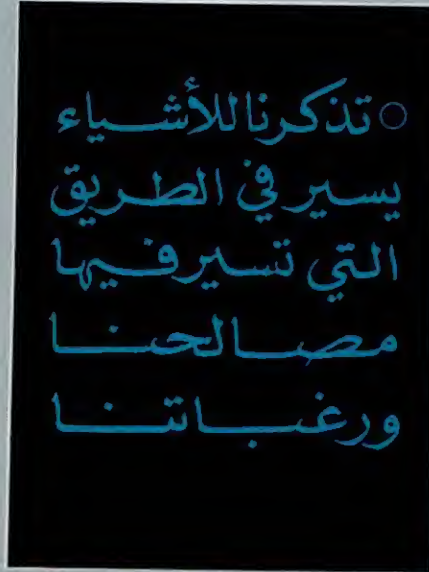 ○ تذكرنا للأشياء
يسير في الطريق
التي تسير فيها
مصالحنا
ورغباتنا